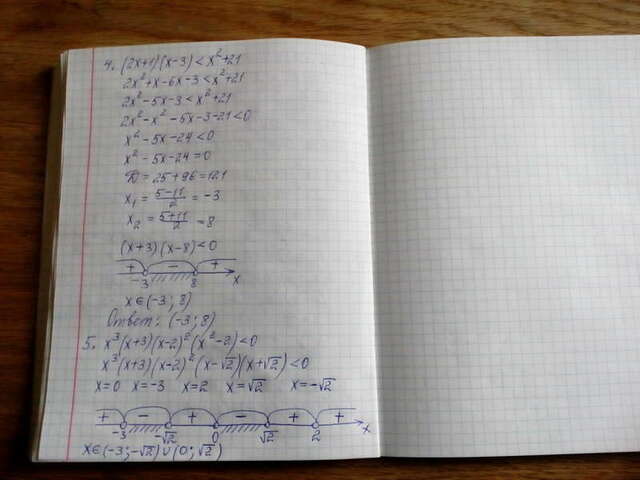 4. (2x+1)(x-3) < x²+21
2x²+x-6x-3 < x²+21
2x²-5x-3 < x²+21
2x²-x²-5x-3-21<0
x²-5x-24<0
x²-5x-24=0
D=25+96=121
x₁ = (5-11)/2 = -3
x₂ = (5+11)/2 = 8
(x+3)(x-8)<0
+ - +
-3 8 x
x∈(-3; 8)
Ответ: (-3; 8)
5. x³(x+3)(x-2)²(x²-2)<0
x³(x+3)(x-2)²(x-√2)(x+√2)<0
x=0 x=-3 x=2 x=√2 x=-√2
+ - + - + +
-3 -√2 0 √2 2 x
x∈(-3; -√2)∪(0; √2)